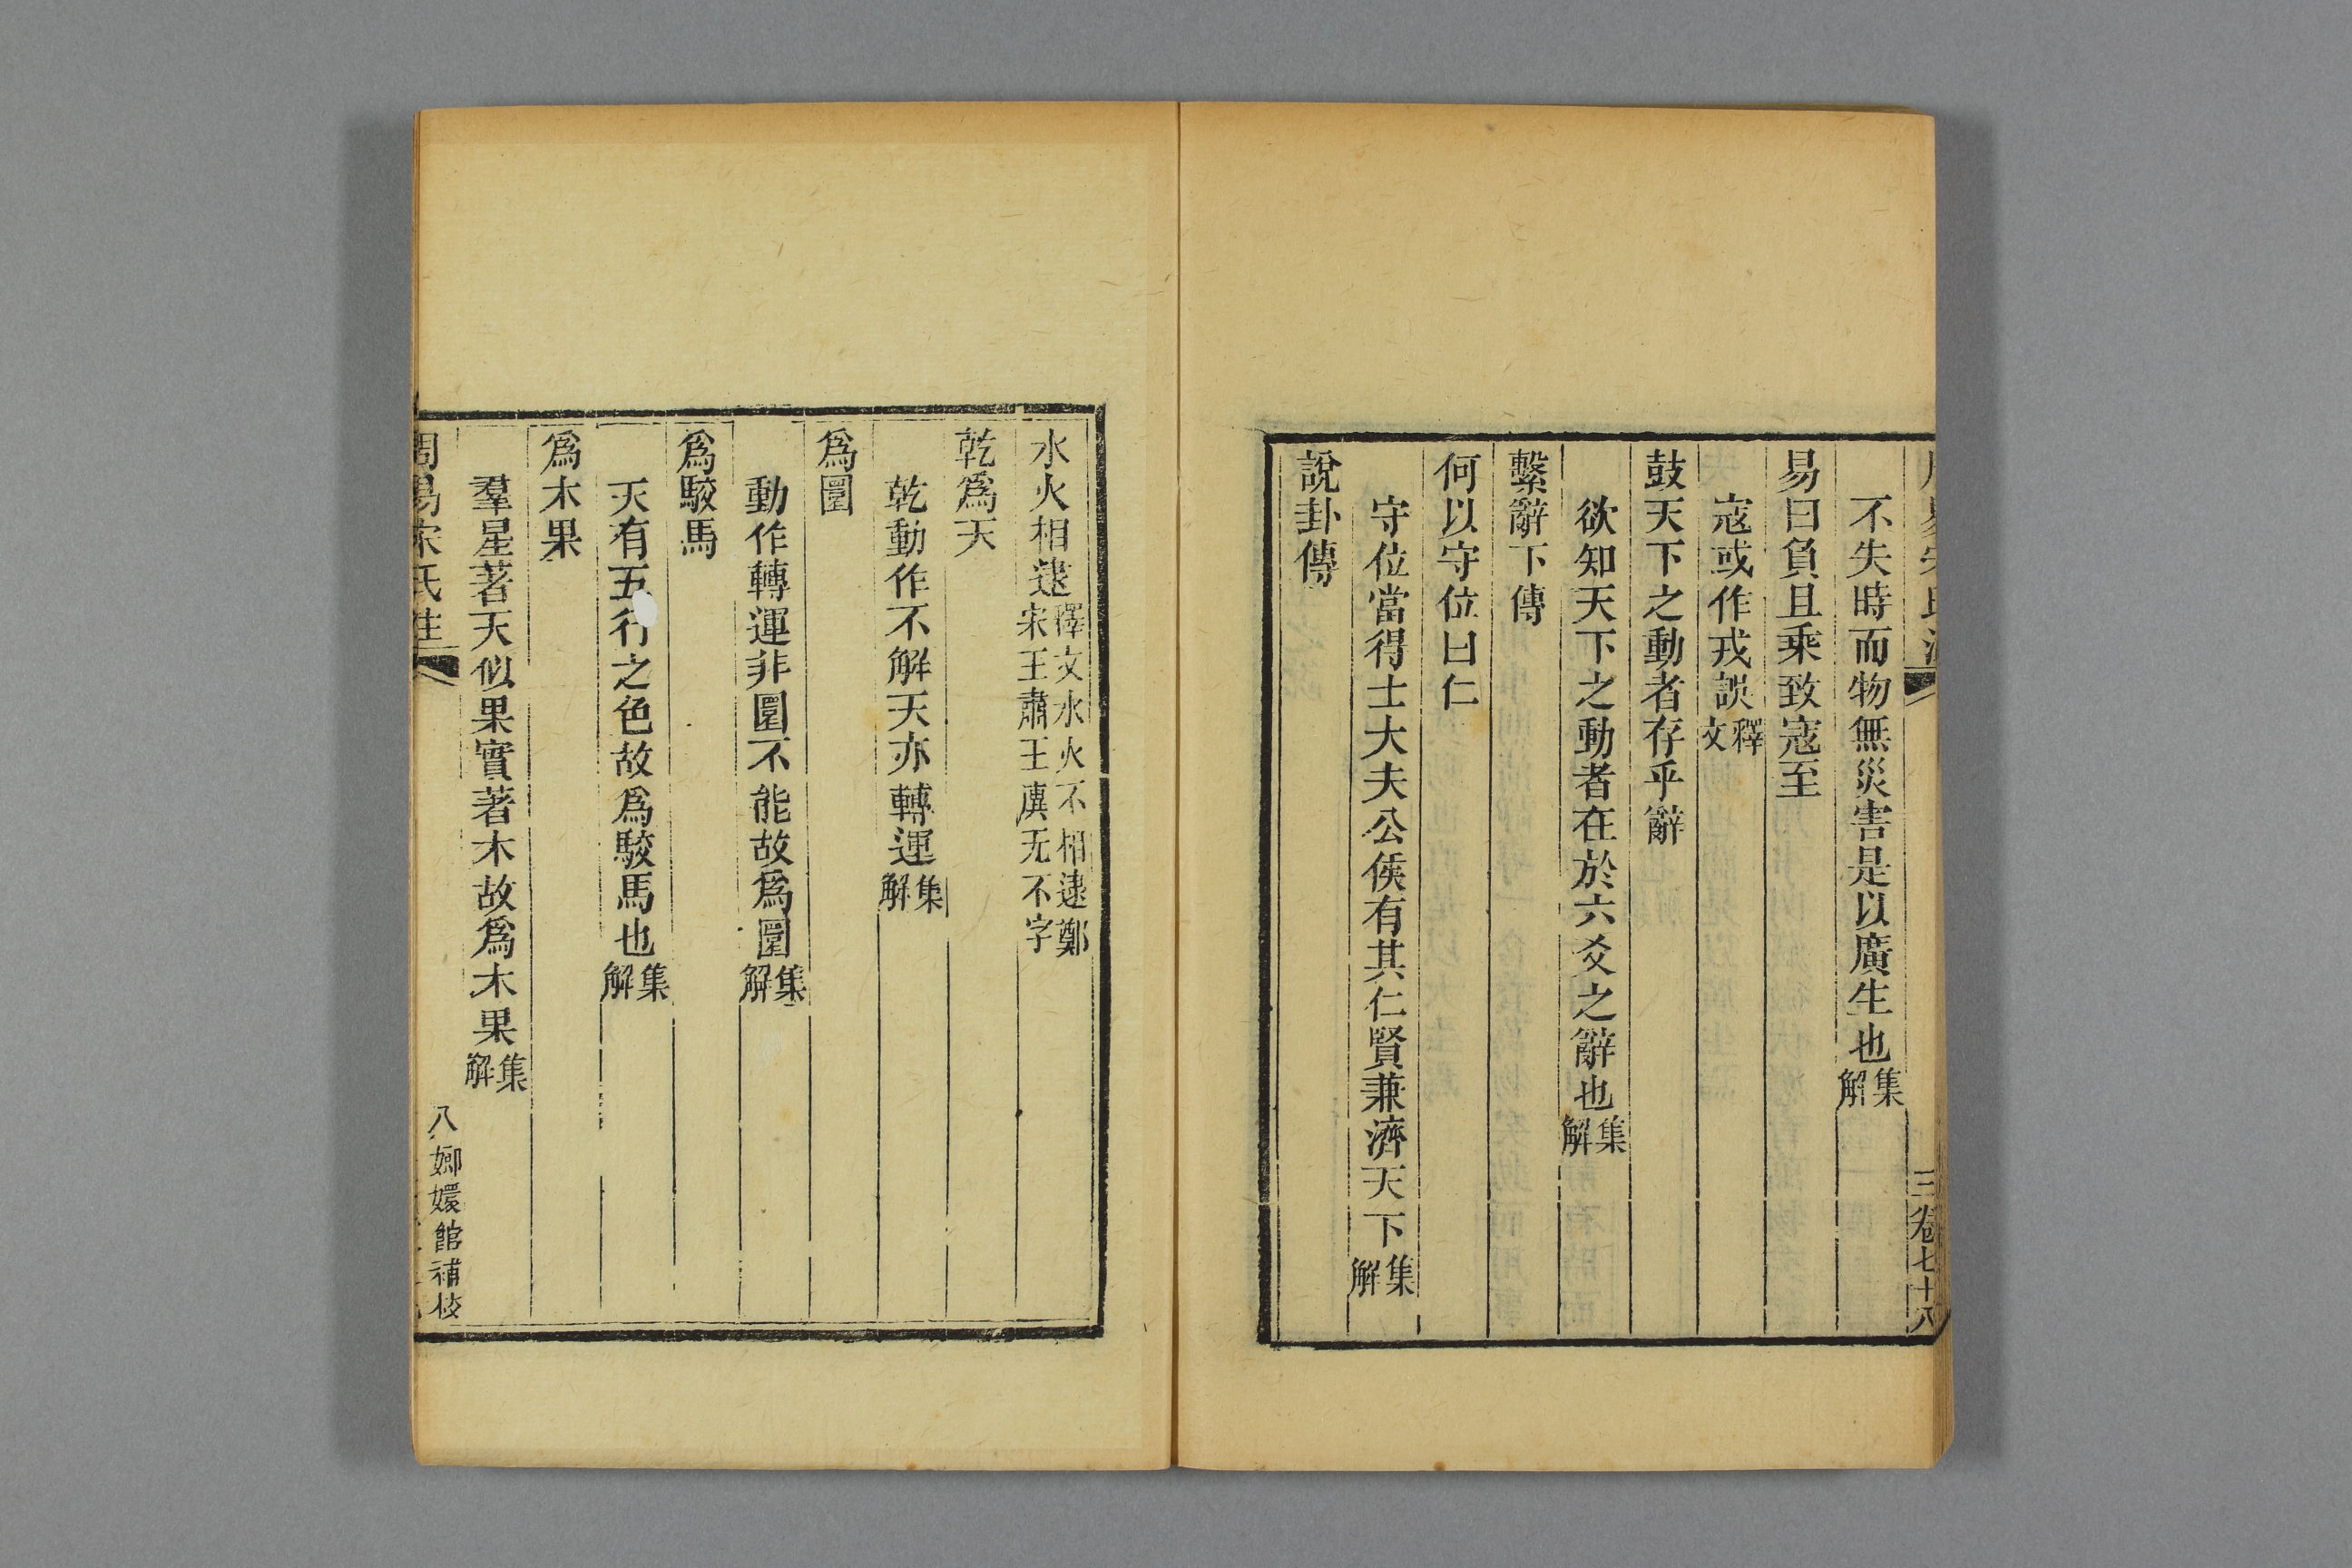 周易宋氏注
三卷七十八
不失時而物無災害是以廣生也集解
易曰負且乘致寇至
寇或作戎誤釋文
鼓天下之動者存乎辭
欲知天下之動者在於六爻之辭也集解
繫辭下傳
何以守位曰仁
守位當得士大夫公侯有其仁賢兼濟天下集解
說卦傳
水火相逮釋文水火不相逮鄭宋王肅王廙无不字
乾爲天
乾動作不解天亦轉運集解
爲圜
動作轉運非圜不能故爲圜集解
爲駮馬
天有五行之色故爲駮馬也集解
爲木果
羣星著天似果實著木故爲木果集解
周易宋氏注
八
嫏嬛館補校